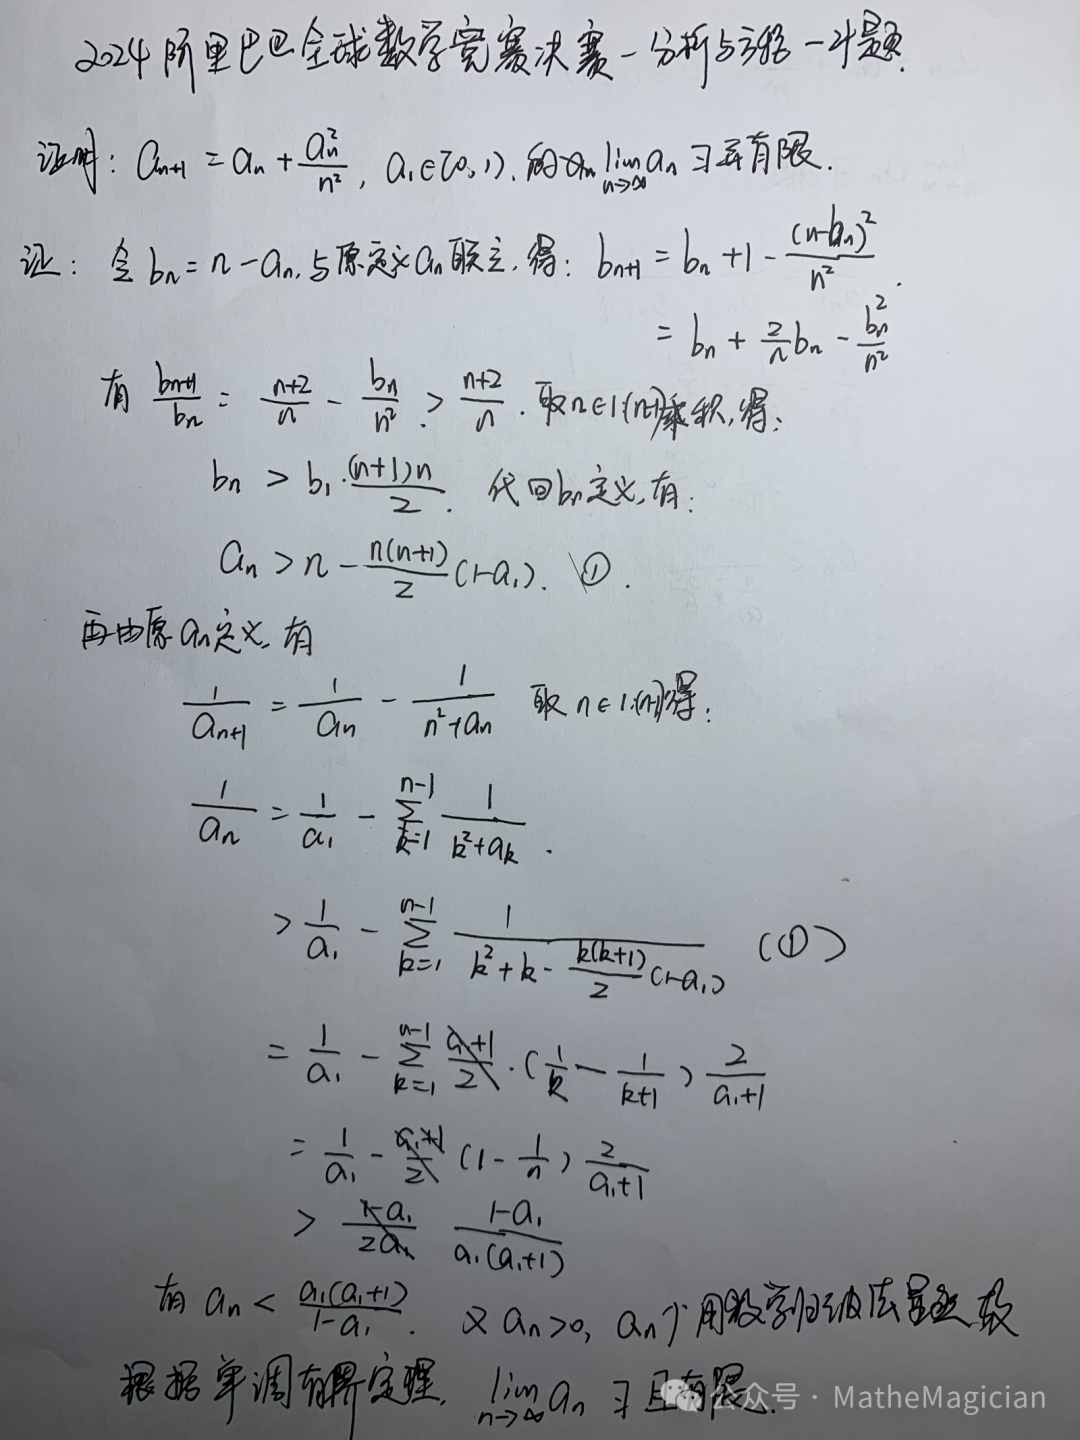 2024阿里巴巴全球数学竞赛决赛-分析与方程-计题.
证明: a_{n+1} = a_n + \frac{a_n^2}{n^2}, a_1∈(0,1), 的 \lim_{n→∞} a_n ∃且有限.
证: 令 b_n = n - a_n, 与原定义a_n联立, 得: b_{n+1} = b_n + 1 - \frac{(n-b_n)^2}{n^2}.
= b_n + \frac{2}{n} b_n - \frac{b_n^2}{n^2}
有 \frac{b_{n+1}}{b_n} = \frac{n+2}{n} - \frac{b_n}{n^2} > \frac{n+2}{n}. 取n∈1:(n-1)乘积, 得:
b_n > b_1 · \frac{(n+1)n}{2}. 代回b_n定义, 有:
a_n > n - \frac{n(n+1)}{2}(1-a_1). ①.
再由原a_n定义, 有
\frac{1}{a_{n+1}} = \frac{1}{a_n} - \frac{1}{n^2+a_n} 取n∈1:(n-1)得:
\frac{1}{a_n} = \frac{1}{a_1} - \sum_{k=1}^{n-1} \frac{1}{k^2+a_k}.
> \frac{1}{a_1} - \sum_{k=1}^{n-1} \frac{1}{k^2+k-\frac{k(k+1)}{2}(1-a_1)} (①)
= \frac{1}{a_1} - \sum_{k=1}^{n-1} \frac{a_1+1}{2} · (\frac{1}{k} - \frac{1}{k+1}) \frac{2}{a_1+1}
= \frac{1}{a_1} - \frac{a_1+1}{2} (1-\frac{1}{n}) \frac{2}{a_1+1}
> \frac{1-a_1}{2a_1} \frac{1-a_1}{a_1(a_1+1)}
有 a_n < \frac{a_1(a_1+1)}{1-a_1}. 又 a_n>0, a_n 用数学归纳法
根据单调有界定理, \lim_{n→∞} a_n ∃且有限.
公众号 · MatheMagician